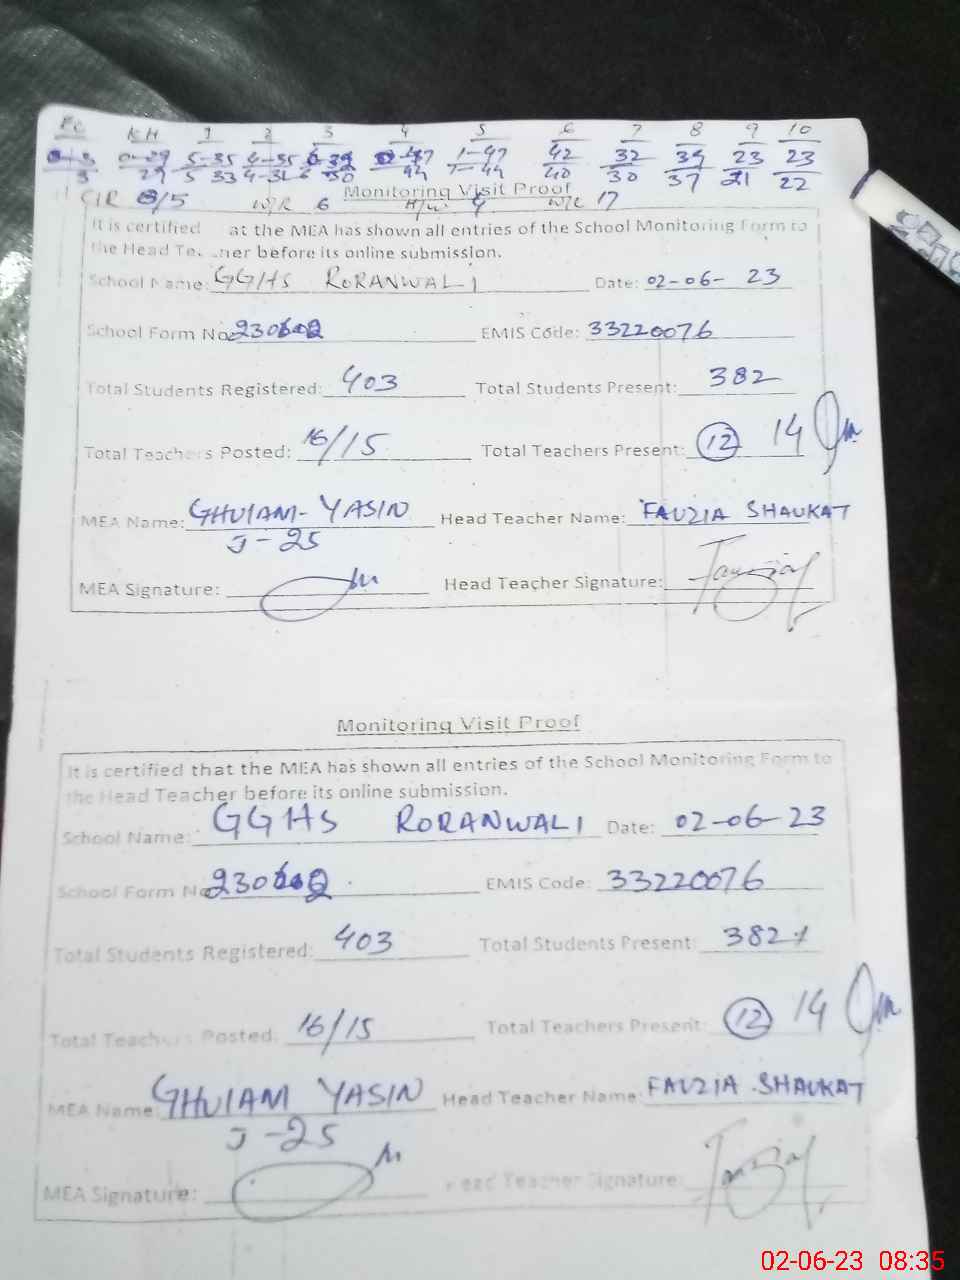 KH 1 2 3 4 5 6 7 8 9 10
5-35 4-35 1-47 42 32 39 23 23
29 5 33 4-31 44 40 30 37 21 22
Monitoring Visit Proof
CIR 8/5 W/R 6 17
It is certified at the MEA has shown all entries of the School Monitoring Form to
the Head Te ner before its online submission.
School Name: GGHS RORANWALI Date: 02-06-23
School Form No EMIS Code: 33220076
Total Students Registered: 403 Total Students Present: 382
Total Teachers Posted: 16/15 Total Teachers Present: 12 14
MEA Name: GHULAM-YASIN Head Teacher Name: FAUZIA SHAUKAT
J-25
MEA Signature: Head Teacher Signature:
Monitoring Visit Proof
It is certified that the MEA has shown all entries of the School Monitoring Form to
the Head Teacher before its online submission.
School Name: GGHS RORANWALI Date: 02-06-23
School Form No EMIS Code: 33220076
Total Students Registered: 403 Total Students Present: 382
Total Teachers Posted: 16/15 Total Teachers Present: 12 14
MEA Name: GHULAM YASIN Head Teacher Name: FAUZIA SHAUKAT
J-25
MEA Signature: Head Teacher Signature:
02-06-23 08:35